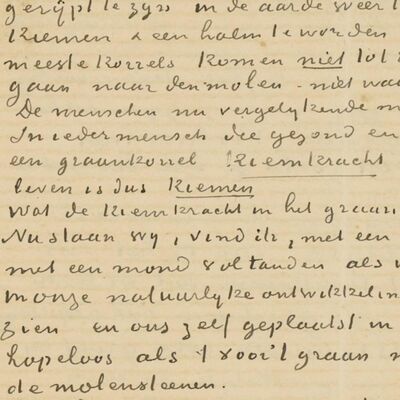 gerijpt te zijn in de aarde weer t
Kiemen & een halm te worden
meeste korrels komen niet tot
gaan naar den molen - niet waa
De menschen nu vergelykende m
In ieder mensch die gezond en
een graankorrel Kiemkracht
leven is dus Kiemen
Wat de Kiemkracht in het graan
Nu staan wy, vind ik, met een
met een mond vol tanden als w
monze natuurlyke ontwikkelin
zien en ons zelf geplaatst in
hopeloos als 't voor 't graan m
de molensteenen.